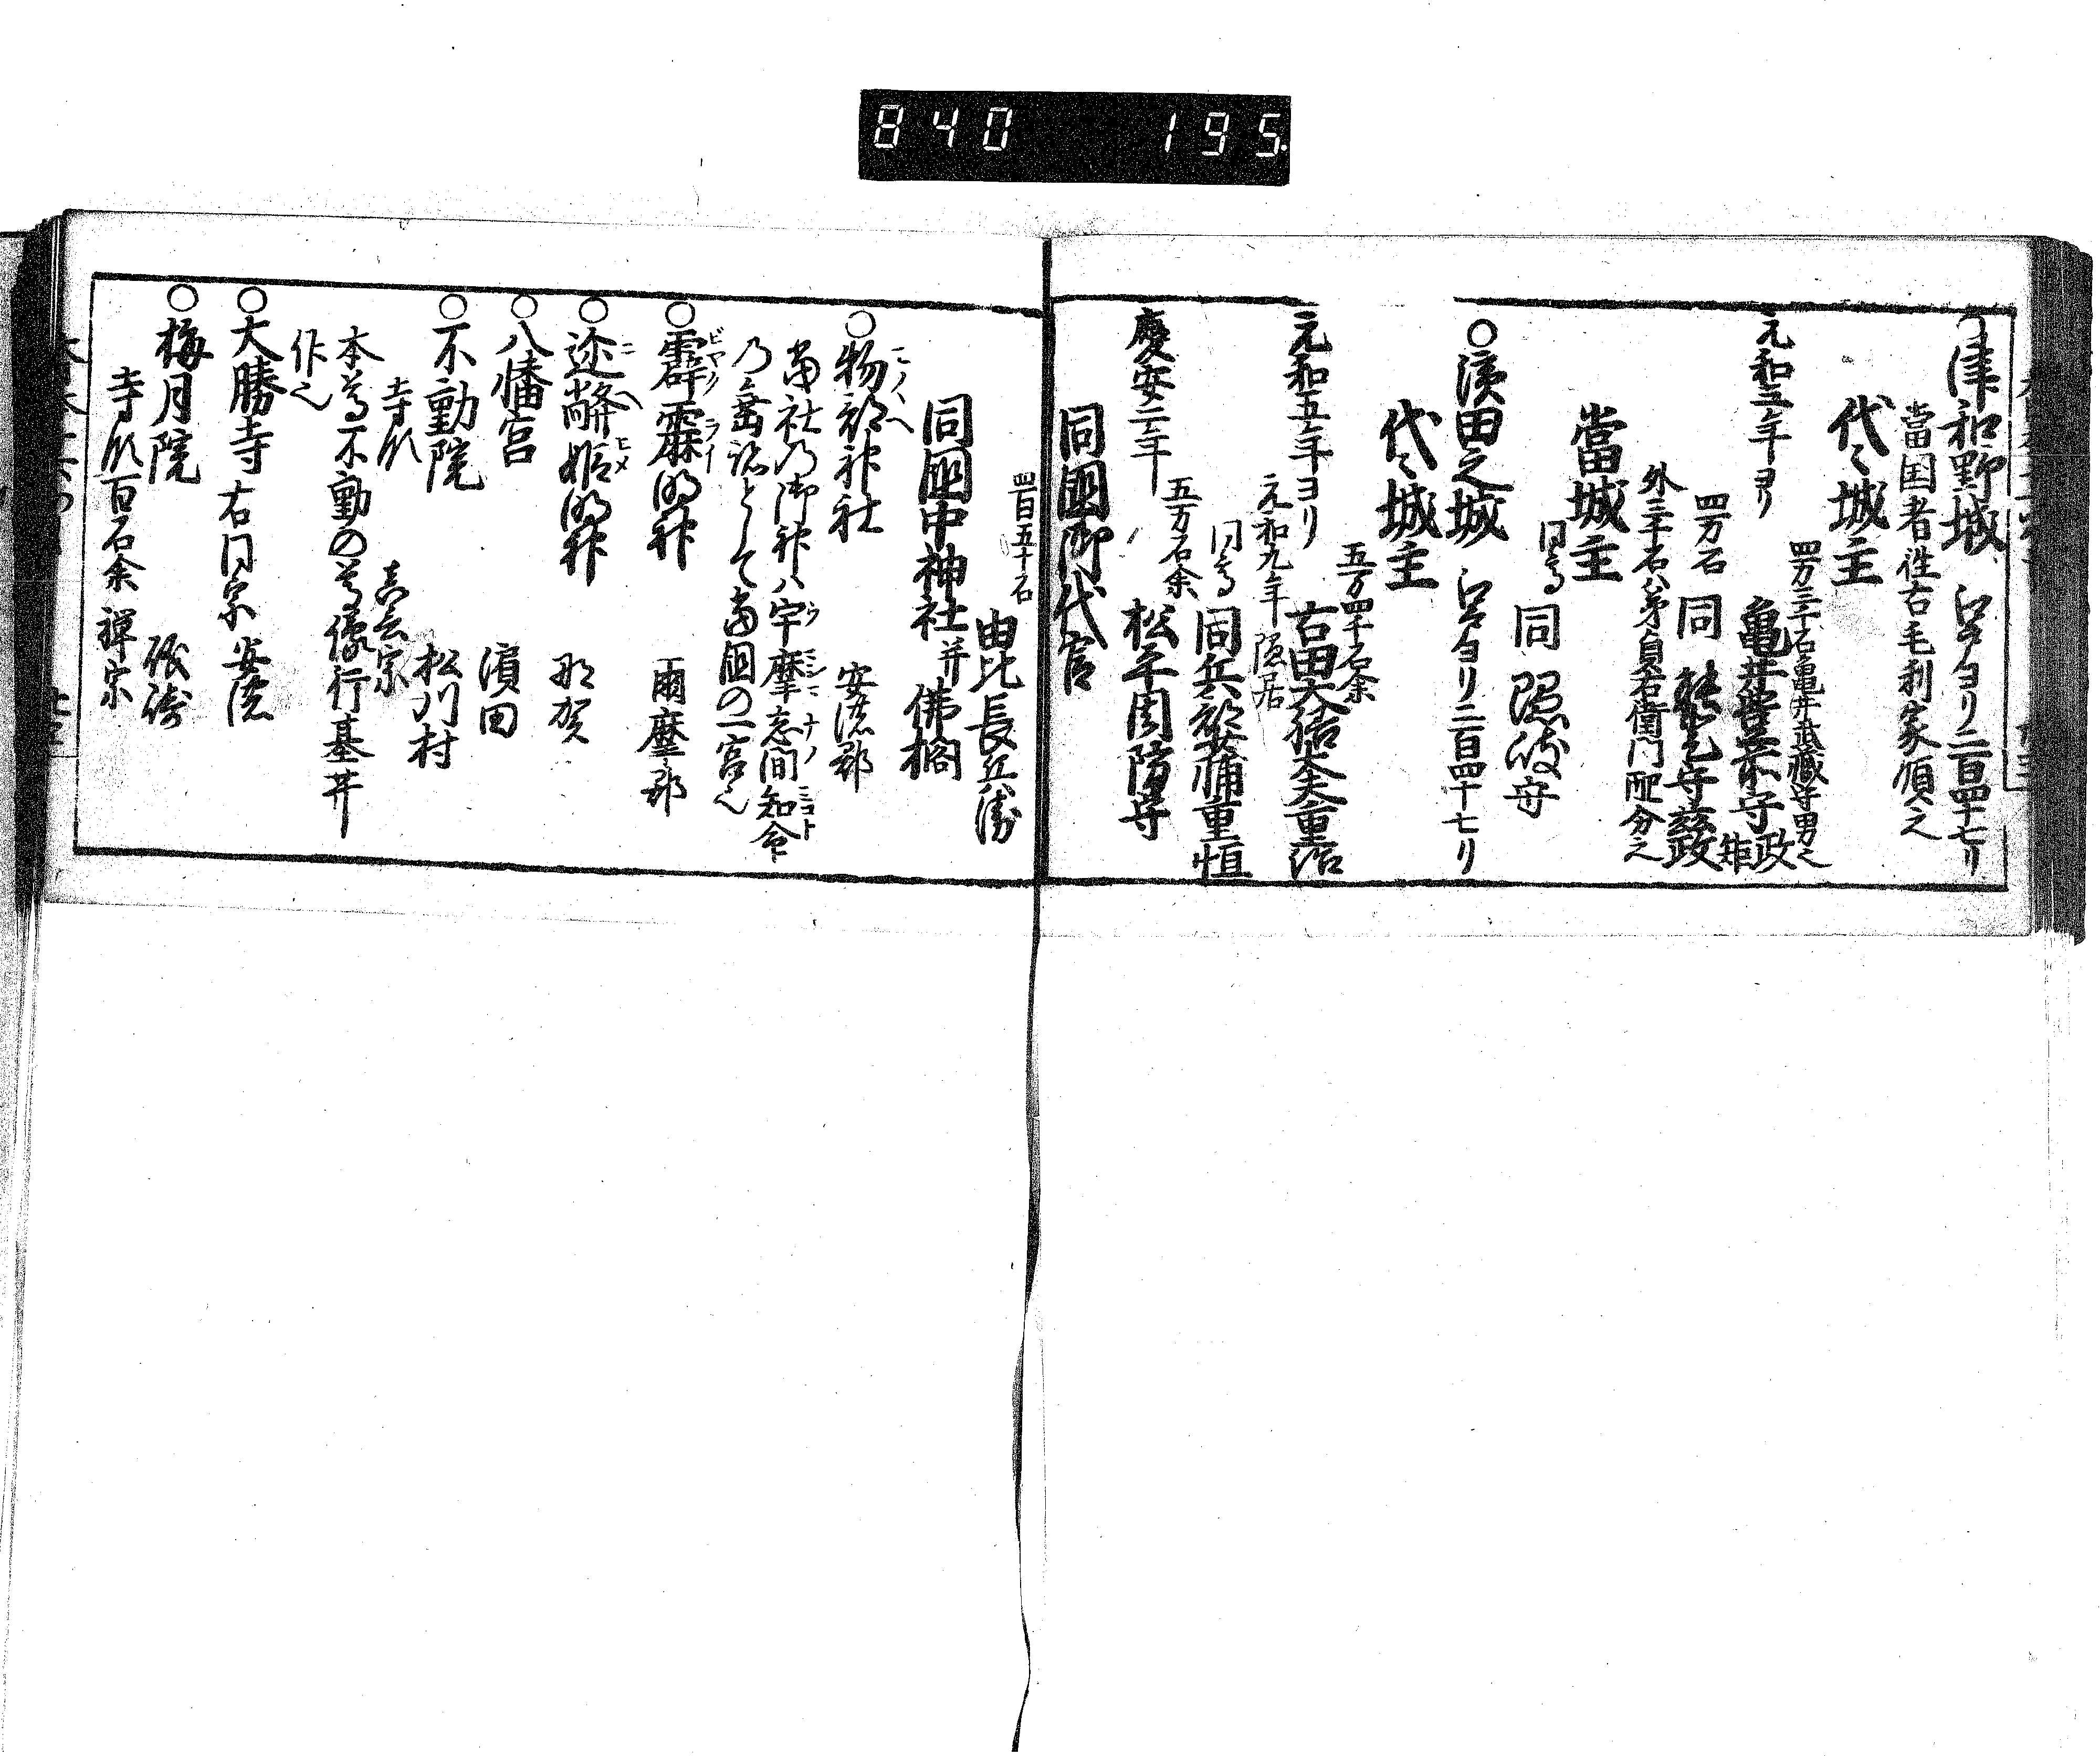 840 195
○津和野城 江戸ヨリ二百四十七リ
當国者往古毛利家領之
代々城主
四万三千石亀井武藏守男之
元和三年ヨリ 亀井豊前守政矩
四万石 同 能登守茲政
外三千石ハ弟貞右衛門配分之
當城主
同高 同 隠岐守
○濱田之城 江戸ヨリ二百四十七リ
代々城主
五万四千石余
元和五年ヨリ 古田大膳大夫重治
元和九年隠居
同高 同兵部少輔重恒
五万石余
慶安二年 松平周防守
同國御代官
四百五十石 由比長兵衛
同國中神社并佛閣
○物部神社 安濃郡
當社乃御神ハ宇摩志間知命
乃垂迹として當国の一宮之
○霹靂明神 邇摩郡
明神 那賀
○八幡宮 濱田
○不動院 松川村
寺領 真言宗
本尊不動の尊像行基井
作之
○大勝寺 右同宗 安濃
○梅月院
寺領百石余 禅宗